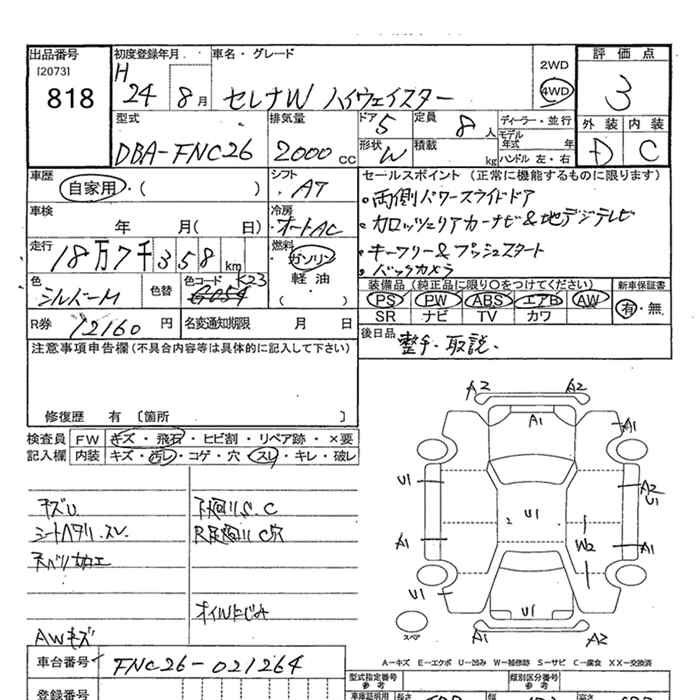 出品番号
[2073]
818
初度登録年月
H
24
8月
車名・グレード
セレナW ハイウェイスター
2WD
4WD
評価点
3
型式
DBA-FNC26
排気量
2000cc
ドア
5
定員
8人
ディーラー・並行
モデル
年式 年
ハンドル 左・右
形状
W
積載
kg
外装
内装
D
C
車歴
自家用・( )
シフト
AT
セールスポイント(正常に機能するものに限ります)
・両側パワースライドドア
・カロッツェリアカーナビ&地デジテレビ
・キーフリー&プッシュスタート
・バックカメラ
車検
年 月( 日)
冷房
オートAC
走行
18万7千358km
燃料
ガソリン
軽油
( )
色
シルバーM
色替
色コード K23
装備品(純正品に限り○をつけてください)
PS PW ABS エアB AW
SR ナビ TV カワ
新車保証書
有・無
R券
12160円
名変通知期限 月 日
後日品
整手・取説
注意事項申告欄(不具合内容等は具体的に記入して下さい)
修復歴 有 [箇所 ]
検査員
記入欄
FW キズ・飛石・ヒビ割・リペア跡・×要
内装 キズ・汚レ・コゲ・穴・スレ・キレ・破レ
キズU
シートヘタリ.スレ
下廻りS.C
オイルにじみ
AWキズ
A2 A2
A1
A1
U1
A2
U1
U1
A1
W2
A1
U1
U1
スペア
A1
A2
A-キズ E-エクボ U-凹み W-補修跡 S-サビ C-腐食 XX-交換済
車台番号
FNC26-021264
登録番号
型式指定番号
参考
類別区分番号
参考
車庫証明用
長さ
幅
高さ